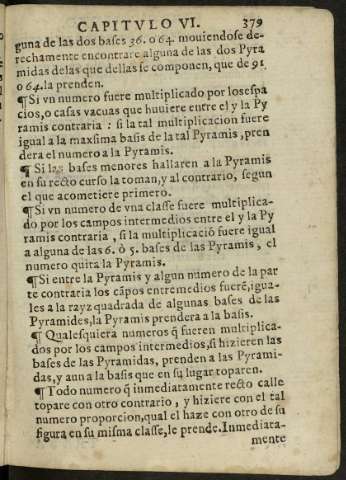 CAPITVLO VI. 379
guna de las dos bases 36. o 64 mouiendose de-
rechamente encontrare alguna de las dos Pyra
midas delas que dellas se componen, que de 91
o 64. la prenden.
¶ Si vn numero fuere multiplicado por los espa
cios, o casas vacuas que huuiere entre el y la Py
ramis contraria : si la tal multiplicacion fuere
igual a la maxsima basis de la tal Pyramis, pren
dera el numero a la Pyramis.
¶ Si las bases menores hallaren a la Pyramis
en su recto curso la toman, y al contrario, segun
el que acometiere primero.
¶ Si vn numero de vna classe fuere multiplica-
do por los campos intermedios entre el y la Py
ramis contraria, si la multiplicació fuere igual
a alguna de las 6. ò 5. bases de las Pyramis, el
numero quita la Pyramis.
¶ Si entre la Pyramis y algun numero de la par
te contraria los cãpos entremedios fuerẽ, igua-
les a la rayz quadrada de algunas bases de las
Pyramides, la Pyramis prendera a la basis.
¶ Qualesquiera numeros q̃ fueren multiplica-
dos por los campos intermedios, si hizieren las
bases de las Pyramidas, prenden a las Pyrami-
das, y aun a la basis que en su lugar toparen.
¶ Todo numero q̃ inmediatamente recto calle
topare con otro contrario, y hiziere con el tal
numero proporcion, qual el haze con otro de su
figura en su misma classe, le prende. Inmediata-
mente